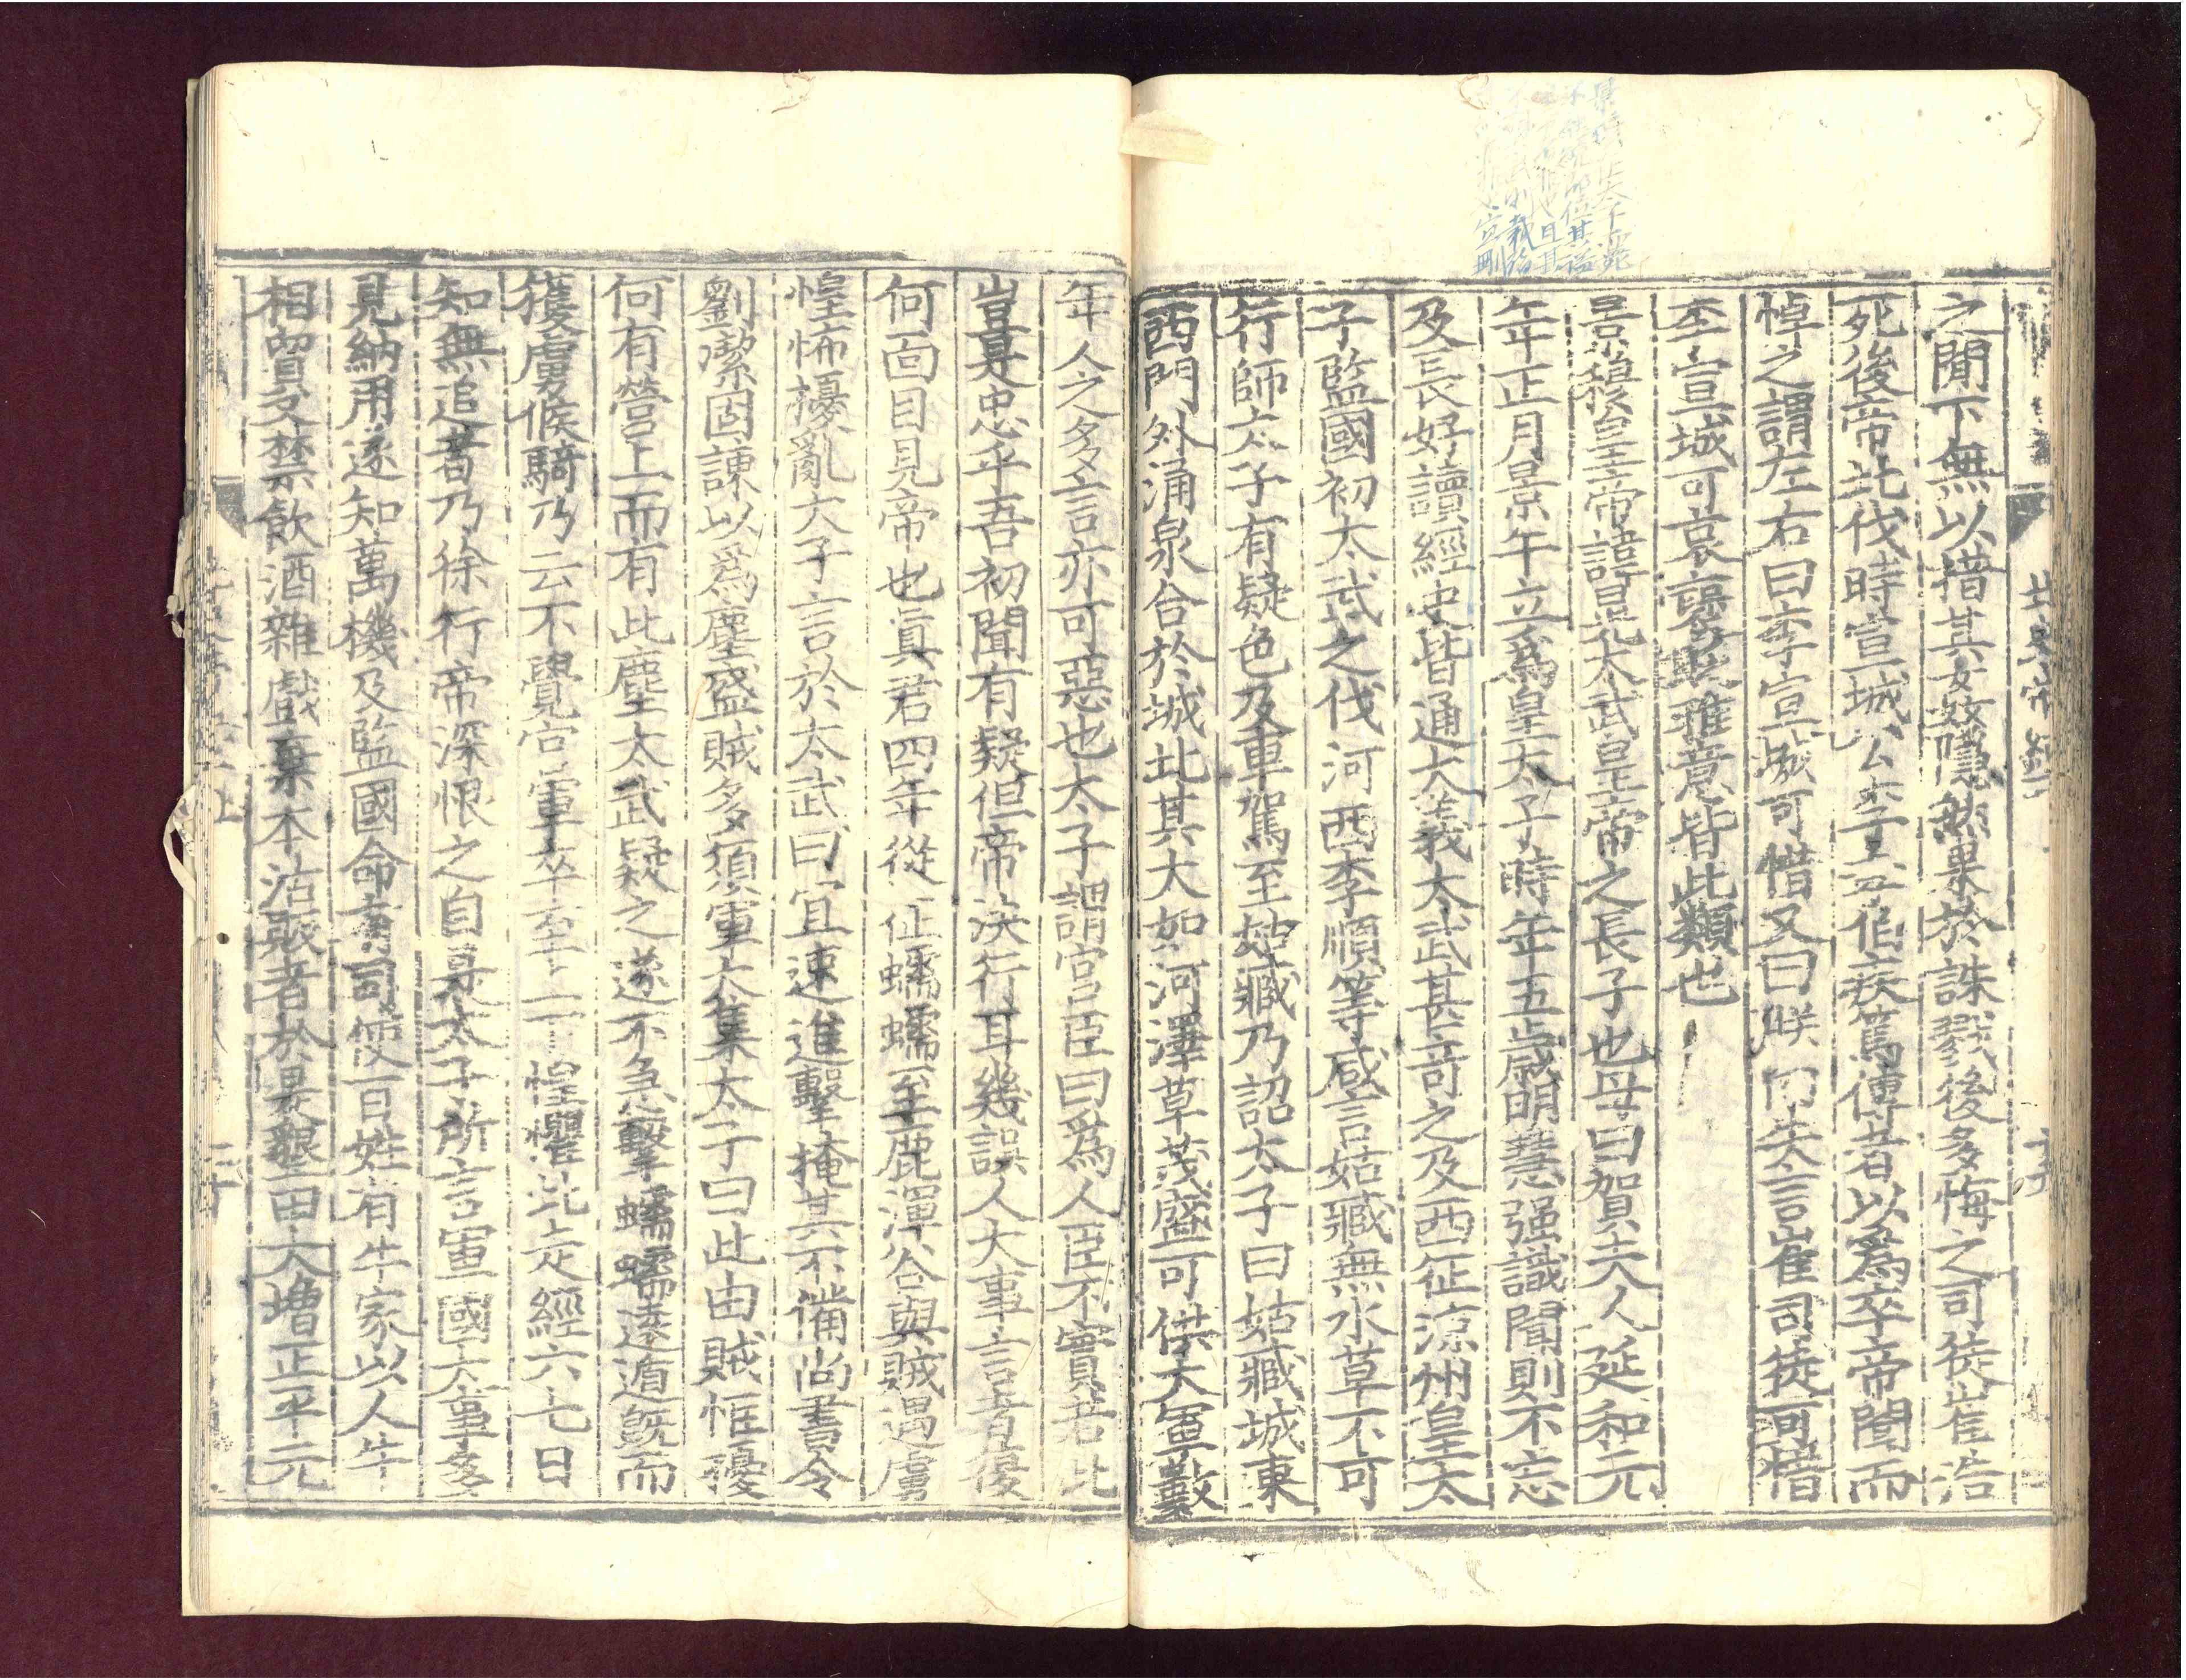 之間下無以措其姦隱然果於誅戮後多悔之司徒崔浩
死後帝北伐時宣城公李孝伯疾篤傳者以爲卒帝聞而
悼之謂左右曰李宣城可惜又曰朕向失言崔司徒可惜
李宣城可哀褒貶雅意皆此類也
景穆皇帝諱晃太武皇帝之長子也母曰賀夫人延和元
年正月景午立爲皇太子時年五歲明慧强識聞則不忘
及長好讀經史皆通大義太武甚奇之及西征涼州皇太
子監國初太武之伐河西李順等咸言姑臧無水草不可
行師太子有疑色及車駕至姑臧乃詔太子曰姑臧城東
西門外涌泉合於城北其大如河澤草茂盛可供大軍數
年人之多言亦可惡也太子謂宮臣曰爲人臣不實若此
豈是忠乎吾初聞有疑但帝決行耳幾誤人大事言者復
何面目見帝也眞君四年從征蠕蠕至鹿渾谷與賊遇虜
惶怖擾亂太子言於太武曰宜速進擊掩其不備尚書令
劉潔固諫以爲塵盛賊多須軍大集太子曰此由賊恇擾
何有營上而有此塵太武疑之遂不急擊蠕蠕遠遁旣而
獲虜候騎乃云不覺官軍卒至上下惶懼北走經六七日
知無追者乃徐行帝深恨之自是太子所言軍國大事多
見納用遂知萬機及監國命有司使百姓有牛家以人牛
相貿又禁飲酒雜戲棄本沽販者於是墾田大增正平元